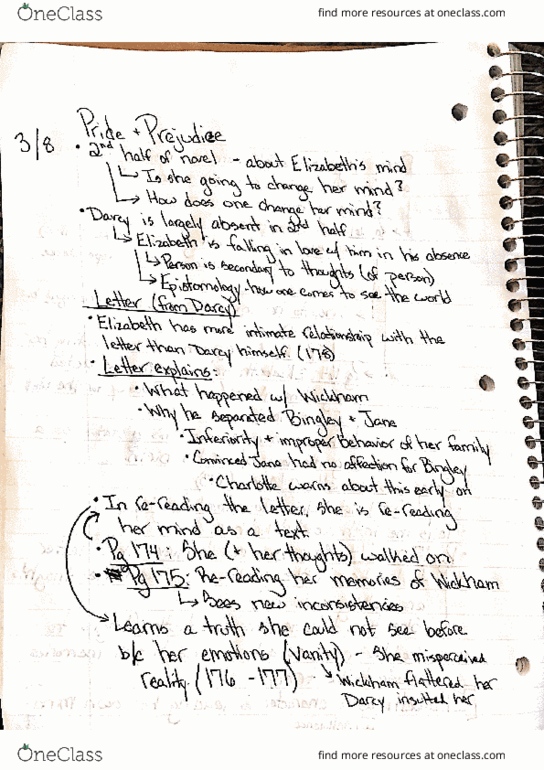 OneClass
find more resources at oneclass.com
3/8
Pride + Prejudice
• 2nd half of novel - about Elizabeth's mind
↳ Is she going to change her mind?
↳ How does one change her mind?
• Darcy is largely absent in 2nd half
↳ Elizabeth is falling in love w/ him in his absence
↳ Person is secondary to thoughts (of person)
↳ Epistomology - how one comes to see the world
Letter (from Darcy)
• Elizabeth has more intimate relationship with the
letter than Darcy himself. (178)
• Letter explains:
• What happened w/ Wickham
• Why he separated Bingley + Jane
• Inferiority + improper behavior of her family
• Convinced Jane had no affection for Bingley
• Charlotte warns about this early on
• In re-reading the letter, she is re-reading
her mind as a text.
• Pg 174: She (+ her thoughts) walked on
• Pg 175: Re-reading her memories of Wickham
↳ Sees new inconsistences
Learns a truth she could not see before
b/c her emotions (Vanity) - She misperceived
reality. (176 - 177)
↳ Wickham flattered her
Darcy insulted her
OneClass
find more resources at oneclass.com